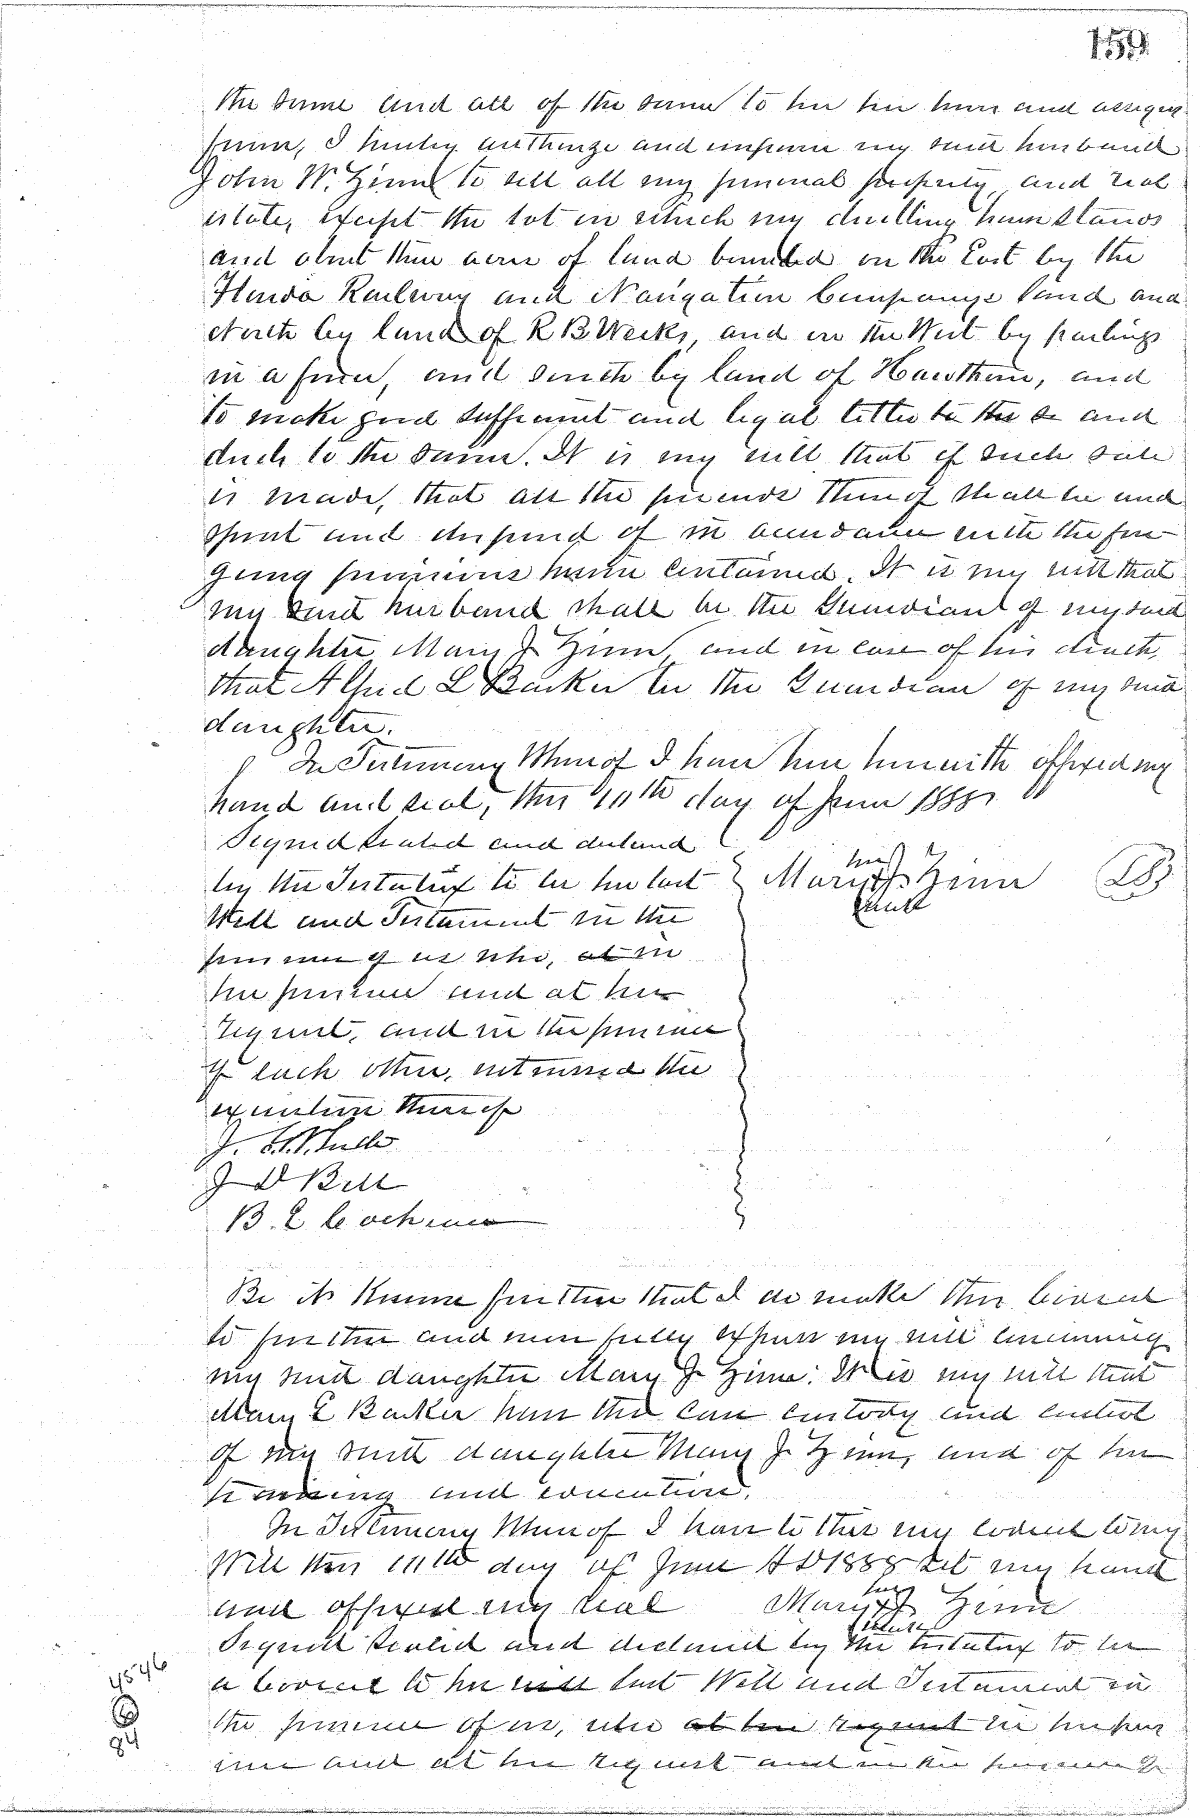 159
the same and all of the same to her her heirs and assigns
I hereby authorize and empower my said husband
John W. Zinn to sell all my personal property and real
estate, except the lot on which my dwelling house stands
and about three acres of land bounded on the East by the
Florida Railway and Navigation Company's land and
North by land of R B Weeks, and on the West by
in a fence, and south by land of Hawthorn, and
to make good sufficient and legal titles to the and
deeds to the same. It is my will that if such sale
is made, that all the proceeds thereof shall be and
spent and disposed of in accordance with the fore-
going provisions herein contained. It is my will that
my said husband shall be the Guardian of my said
daughter Mary J Zinn, and in case of his death,
that Alfred L Barker be the Guardian of my said
daughter.
In Testimony Whereof I have here herewith affixed my
hand and seal, this 11th day of June 1888
Signed sealed and declared
by the Testatrix to be her last
Will and Testament in the
presence of us who, at in
her presence and at her
request, and in the presence
of each other, witnessed the
execution thereof
her
Mary X J Zinn LS
mark
J.
J D Bell
B. E Cochran
Be it Known further that I do make this Codicil
to further and more fully express my will concerning
my said daughter Mary J Zinn: It is my will that
Mary E Barker have the care custody and control
of my said daughter Mary J Zinn, and of her
training and education.
In Testimony Whereof I have to this my codicil to my
Will this 11th day of June A D 1888 set my hand
her
and affixed my seal Mary X J Zinn
mark
Signed Sealed and declared by the testatrix to be
a Codicil to her will last Will and Testament in
the presence of us, who at her request in her pres
ence and at her request and in the presence of
4546
6
84